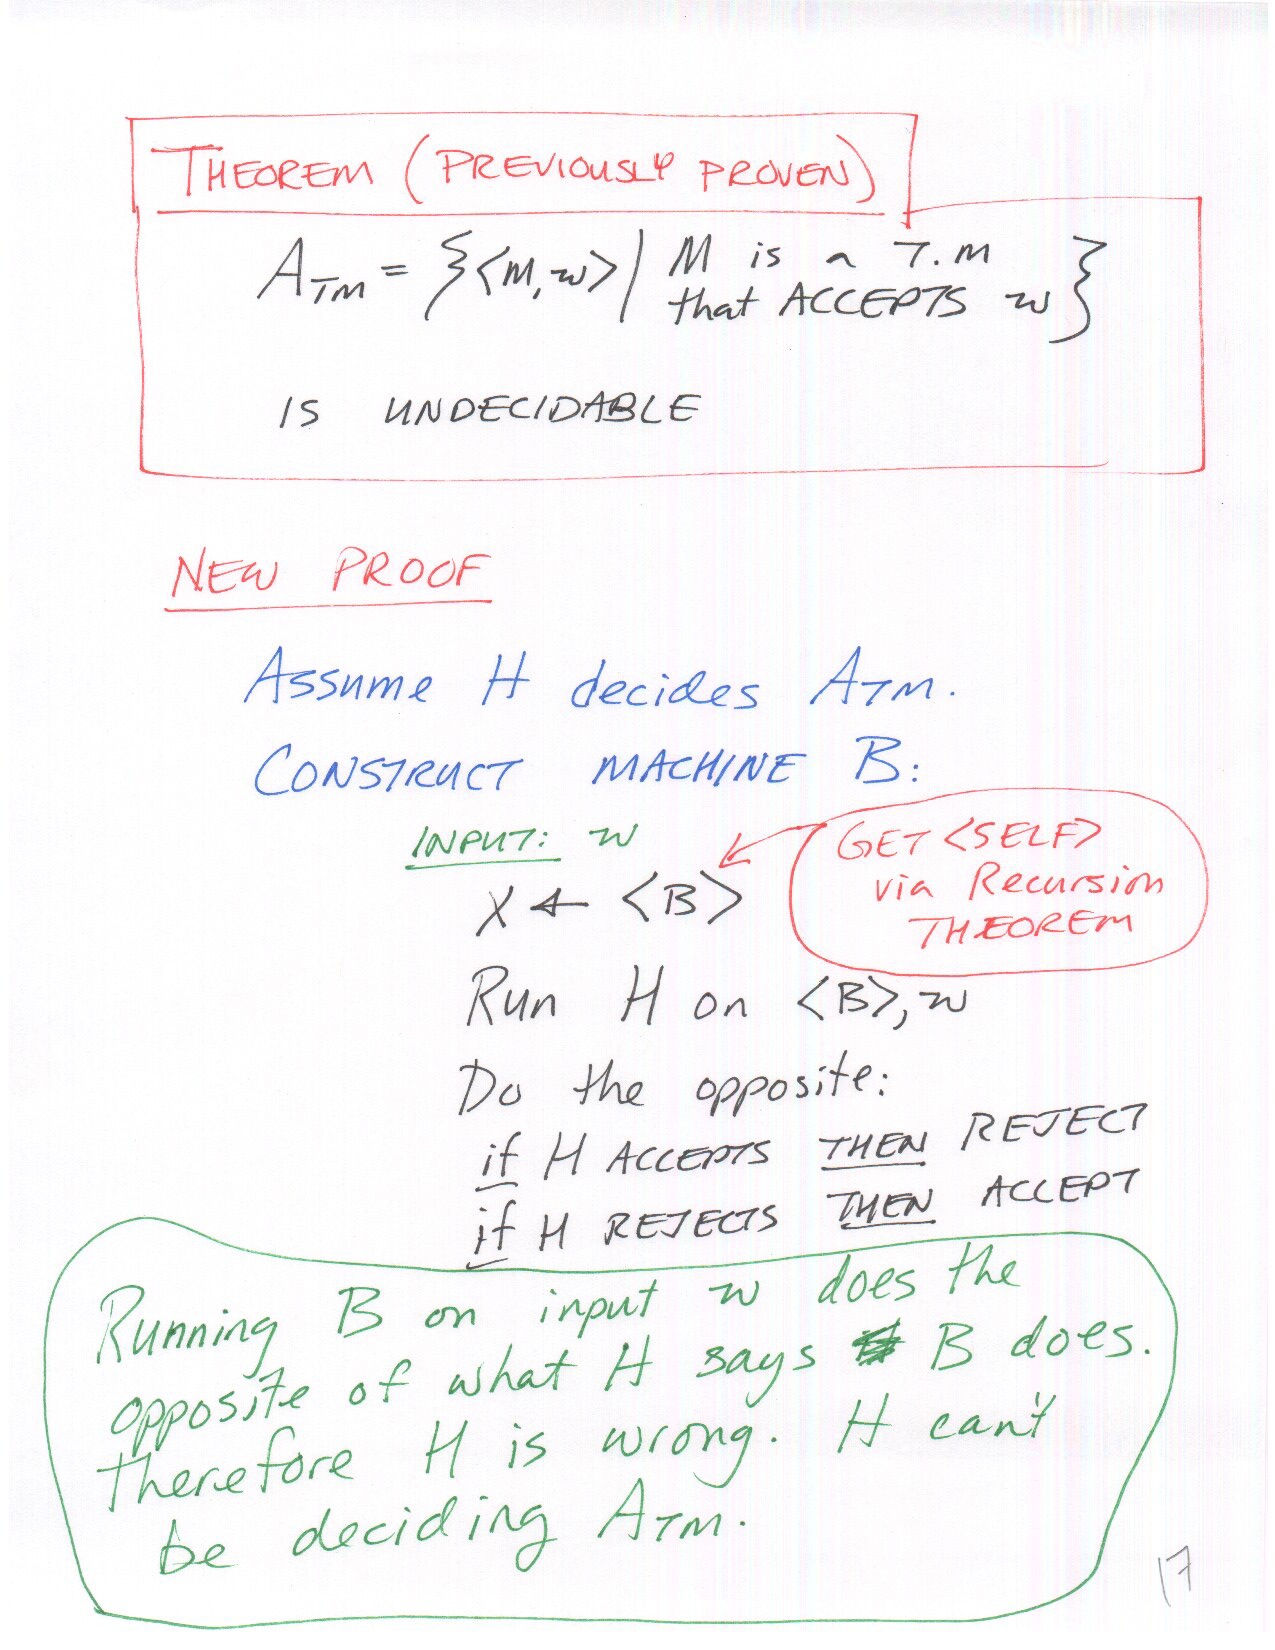 THEOREM (PREVIOUSLY PROVEN)
A_TM = {<M, w> | M is a T.M
that ACCEPTS w}
IS UNDECIDABLE
NEW PROOF
Assume H decides A_TM.
CONSTRUCT MACHINE B:
INPUT: w
X ← <B>
GET <SELF>
via Recursion
THEOREM
Run H on <B>, w
Do the opposite:
if H ACCEPTS THEN REJECT
if H REJECTS THEN ACCEPT
Running B on input w does the
opposite of what H says B does.
Therefore H is wrong. H can't
be deciding A_TM.
17